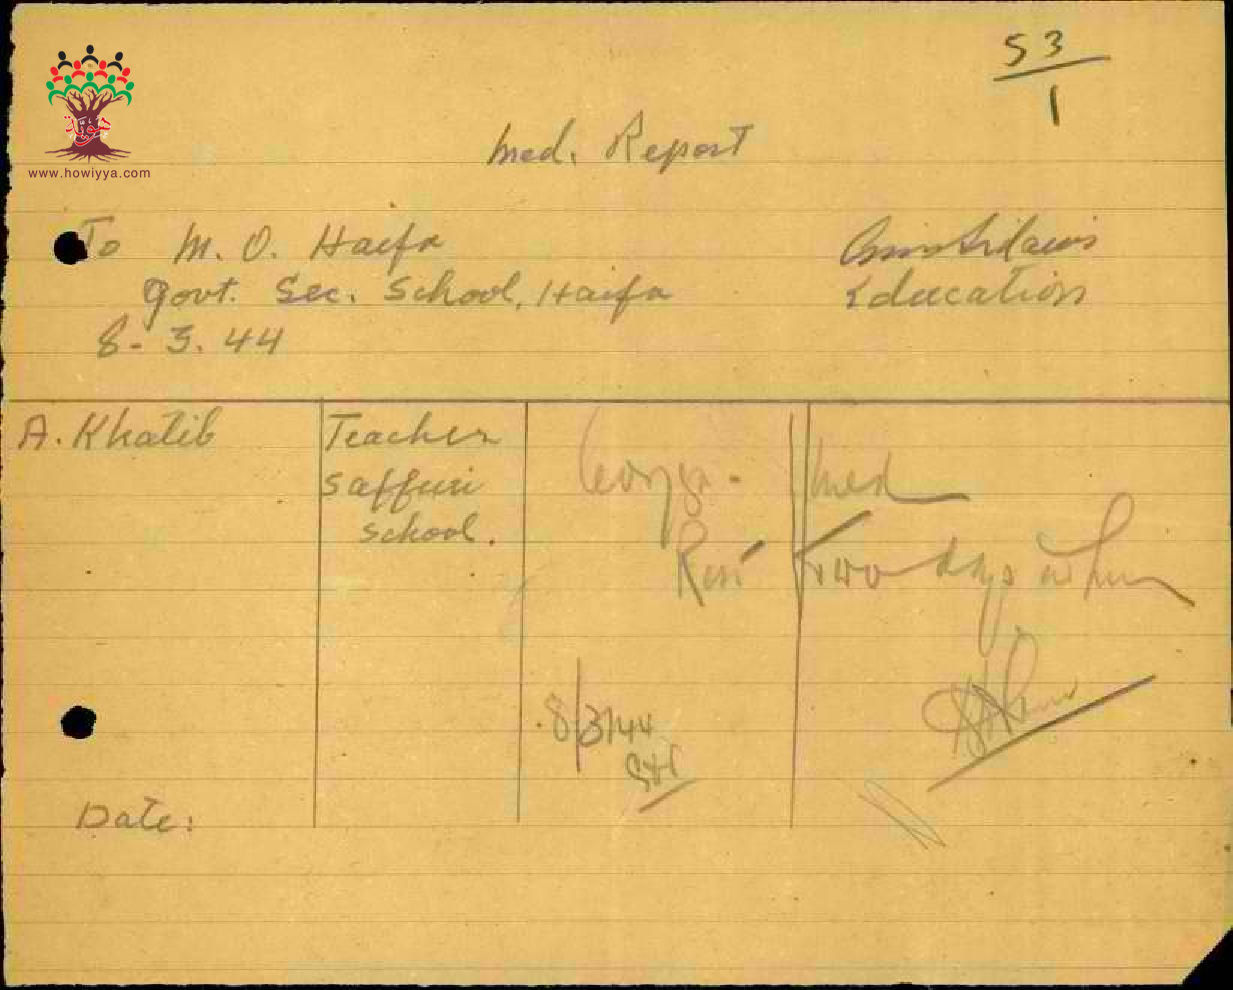 53
1
Med. Report
To M. O. Haifa
Govt. Sec. School, Haifa
Education
8-3.44
A. Khatib
Teacher
Saffuri
School.
Med
Rest Two days
8/3/44
Date:
هوية
www.howiyya.com